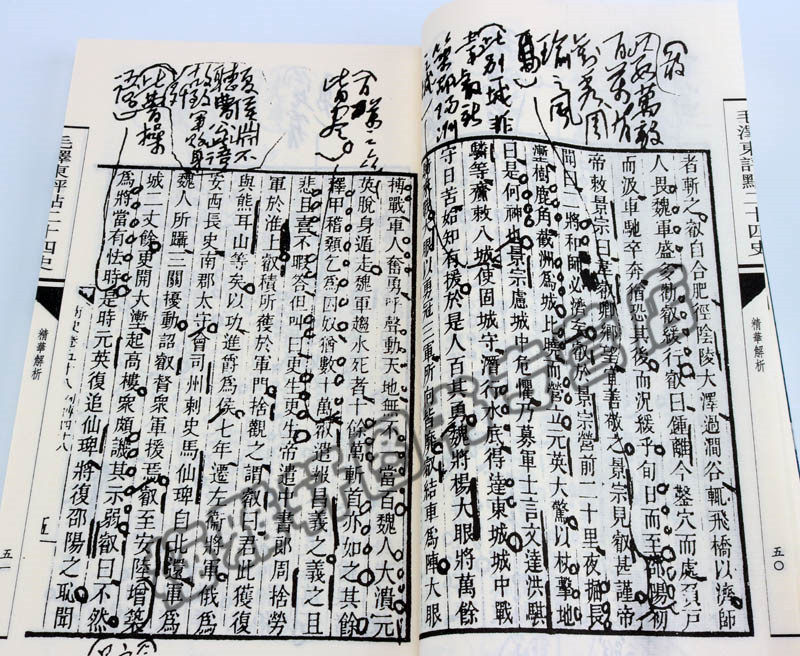 毛澤東評點二十四史
精華解析
五〇
敢
以數萬敵
百萬有
劉秀周
瑜之風
者斬之叡自合肥徑陰陵大澤過澗谷輒飛橋以濟師
人畏魏軍盛多勸叡緩行叡曰鍾離今鑿穴而處負戶
而汲車馳卒奔猶恐其後而況緩乎旬日而至邵陽初
帝敕景宗曰韋叡卿鄉望宜善敬之景宗見叡甚謹帝
聞曰二將和師必濟矣叡於景宗營前二十里夜掘長
塹樹鹿角截洲為城比曉而營立元英大驚以杖擊地
曰是何神也景宗慮城中危懼乃募軍士言文達洪騏
驎等齎敕入城使固城守潛行水底得達東城城中戰
守日苦始知有援於是人百其勇魏將楊大眼將萬餘
以勇冠三軍所向皆靡叡結車為陣大眼
搏戰軍人奮勇呼聲動天地無不一當百魏人大潰元
英脫身遁走魏軍趨水死者十餘萬斬首亦如之其餘
釋甲稽顙乞為囚奴猶數十萬叡遣報昌義之義之且
悲且喜不暇答但叫曰更生更生帝遣中書郎周捨勞
軍於淮上叡積所獲於軍門捨觀之謂叡曰君此獲復
與熊耳山等矣以功進爵為侯七年遷左衛將軍俄為
安西長史南郡太守會司州刺史馬仙琕自北還軍為
魏人所躡三關擾動詔叡督衆軍援焉叡至安陸增築
城二丈餘更開大塹起高樓衆頗譏其示弱叡曰不然
為將當有怯時是時元英復追仙琕將復邵陽之恥聞
夏侯淵不
聽曹公語
此曹操
毛澤東評點二十四史
精華解析
五一